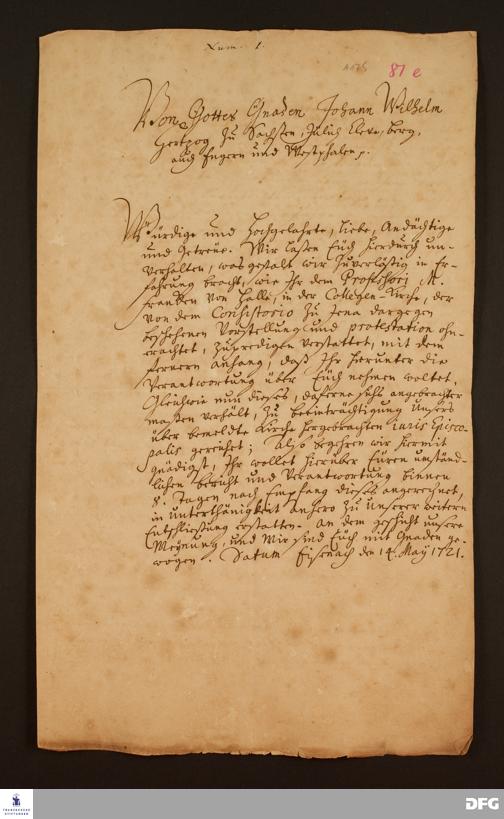 Num. 1.
87 e
Von Gottes Gnaden Johann Wilhelm
Hertzog zu Sachsen, Jülich Cleve, berg,
auch Engern und Westphalen p.
Würdige und Hochgelahrte, liebe, Andächtige
und Getreüe. Wir laßen Eüch hierdurch un-
verhalten, was gestalt wir zuverläßig in Er-
fahrung bracht, wie Ihr dem Professori, M.
Francken von Halle, in der Collegen-Kirche, der
von dem Consistorio zu Jena dargegen
beschehenen Vorstellung und protestation ohn-
erachtet, zu predigen verstattet, mit dem
fernern anhang, daß Ihr hierunter die
Verantwortung über Eüch nehmen woltet.
Gleichwie nun dieses, daferne sichs angebrachter
maßen verhält, zu beeinträchtigung Unsers
über bemeldte Kirche hergebrachten iuris Episco-
palis gereichet; Als begehren wir hiermit
gnädigst, Ihr wollet hierüber Euren umständ-
lichen bericht und Verantwortung binnen
8. Tagen nach Empfang dieses angerechnet,
in unterthänigkeit anhero zu Unserer weitern
Entschließung erstatten. An dem geschicht unsere
Meynung, und Wir sind Eüch mit Gnaden ge-
wogen. Datum Eisenach den 14. May 1721.
FRANCKESCHE
STIFTUNGEN
DFG